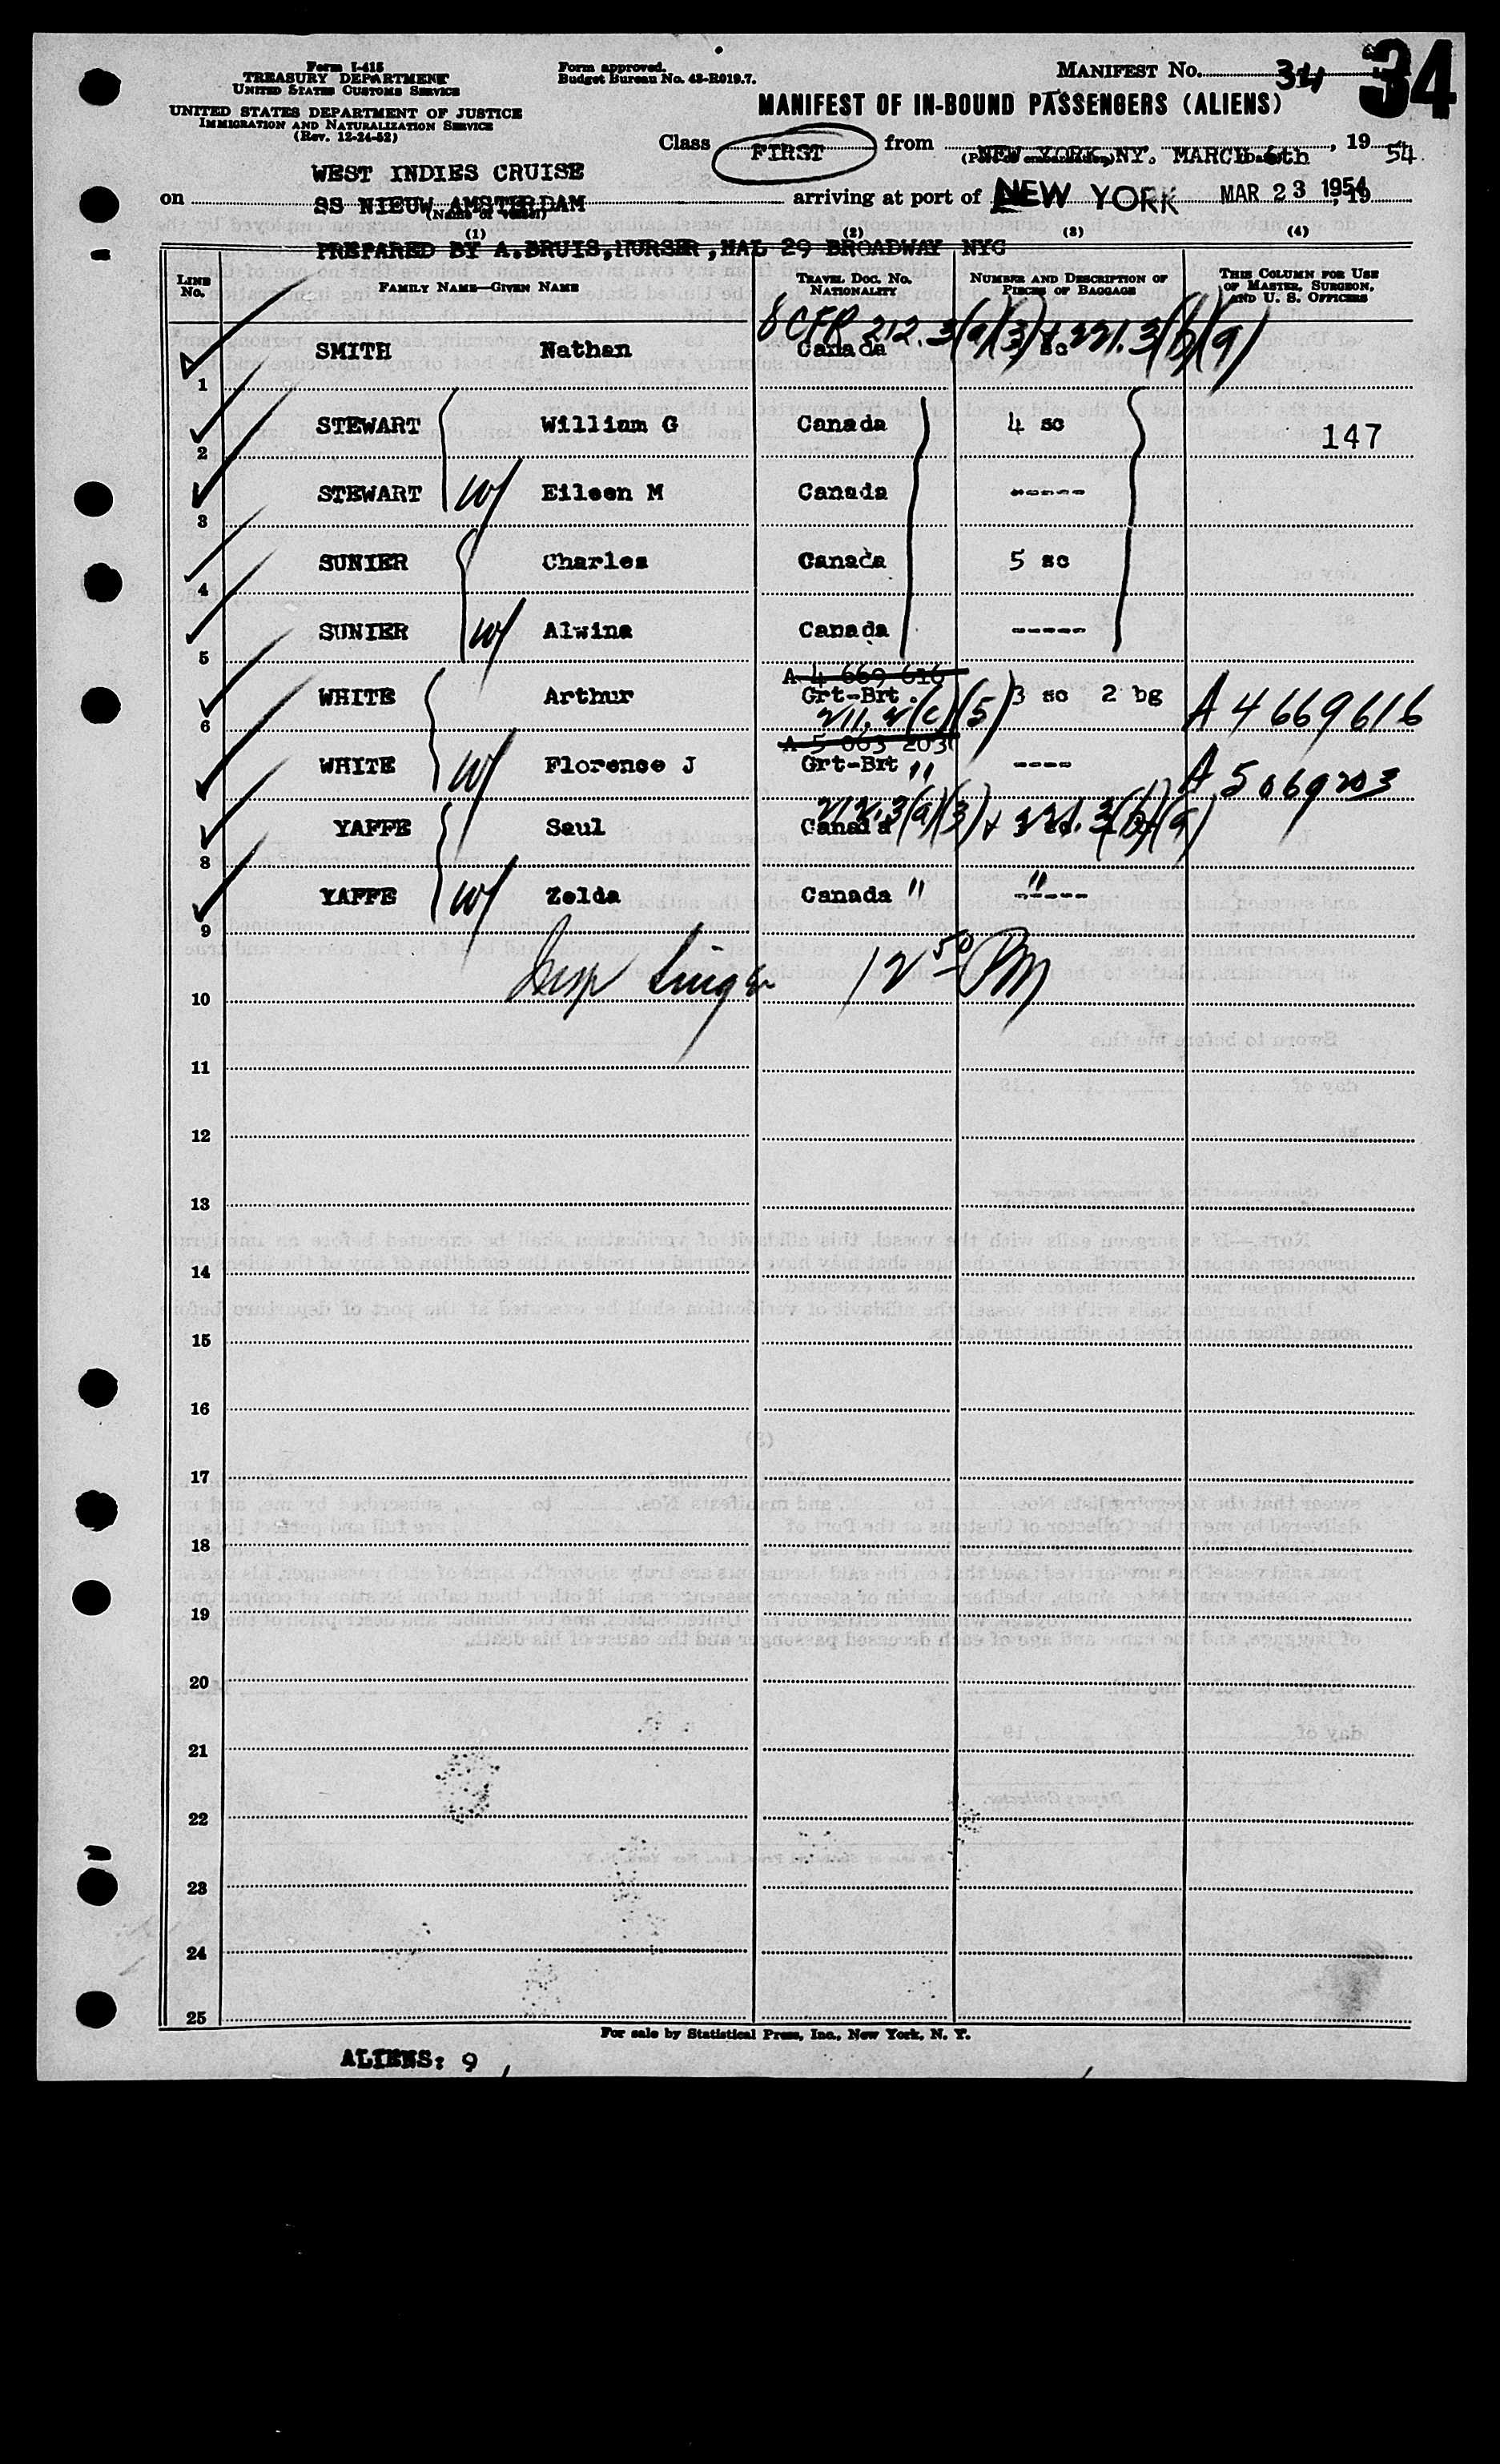 Form I-415
TREASURY DEPARTMENT
UNITED STATES CUSTOMS SERVICE
UNITED STATES DEPARTMENT OF JUSTICE
IMMIGRATION AND NATURALIZATION SERVICE
(Rev. 12-24-52)
Form approved.
Budget Bureau No. 43-R019.7.
MANIFEST No. 34 34
MANIFEST OF IN-BOUND PASSENGERS (ALIENS)
Class FIRST from NEW YORK, NY. MARCH 6th, 19 54
(Port of embarkation)
WEST INDIES CRUISE
on SS NIEUW AMSTERDAM arriving at port of NEW YORK MAR 23 1954, 19
(Name of vessel)
(1) (2) (3) (4)
PREPARED BY A.BRUIS,NURSER,HAL 29 BROADWAY NYC
LINE No. FAMILY NAME—GIVEN NAME TRAVEL DOC. NO. NATIONALITY NUMBER AND DESCRIPTION OF PIECES OF BAGGAGE THIS COLUMN FOR USE OF MASTER, SURGEON, AND U. S. OFFICERS
8 CFR 212.3(a)(3) + 221.3(b)(9)
1 SMITH Nathan Canada sc
2 STEWART William G Canada 4 sc 147
3 STEWART w/ Eileen M Canada -----
4 SUNIER Charles Canada 5 sc
5 SUNIER w/ Alwina Canada -----
A 4 669 616
6 WHITE Arthur Grt-Brt. 3 sc 2 bg A 4669616
211.2(c)(5)
A 5 063 203
WHITE w/ Florence J Grt-Brt " ---- A 5069203
212.3(a)(3) + 221.3(b)(9)
8 YAFFE Saul Canada
9 YAFFE w/ Zelda Canada " " -----
10 Insp 12 50 PM
11
12
13
14
15
16
17
18
19
20
21
22
23
24
25
For sale by Statistical Press, Inc., New York, N. Y.
ALIENS: 9